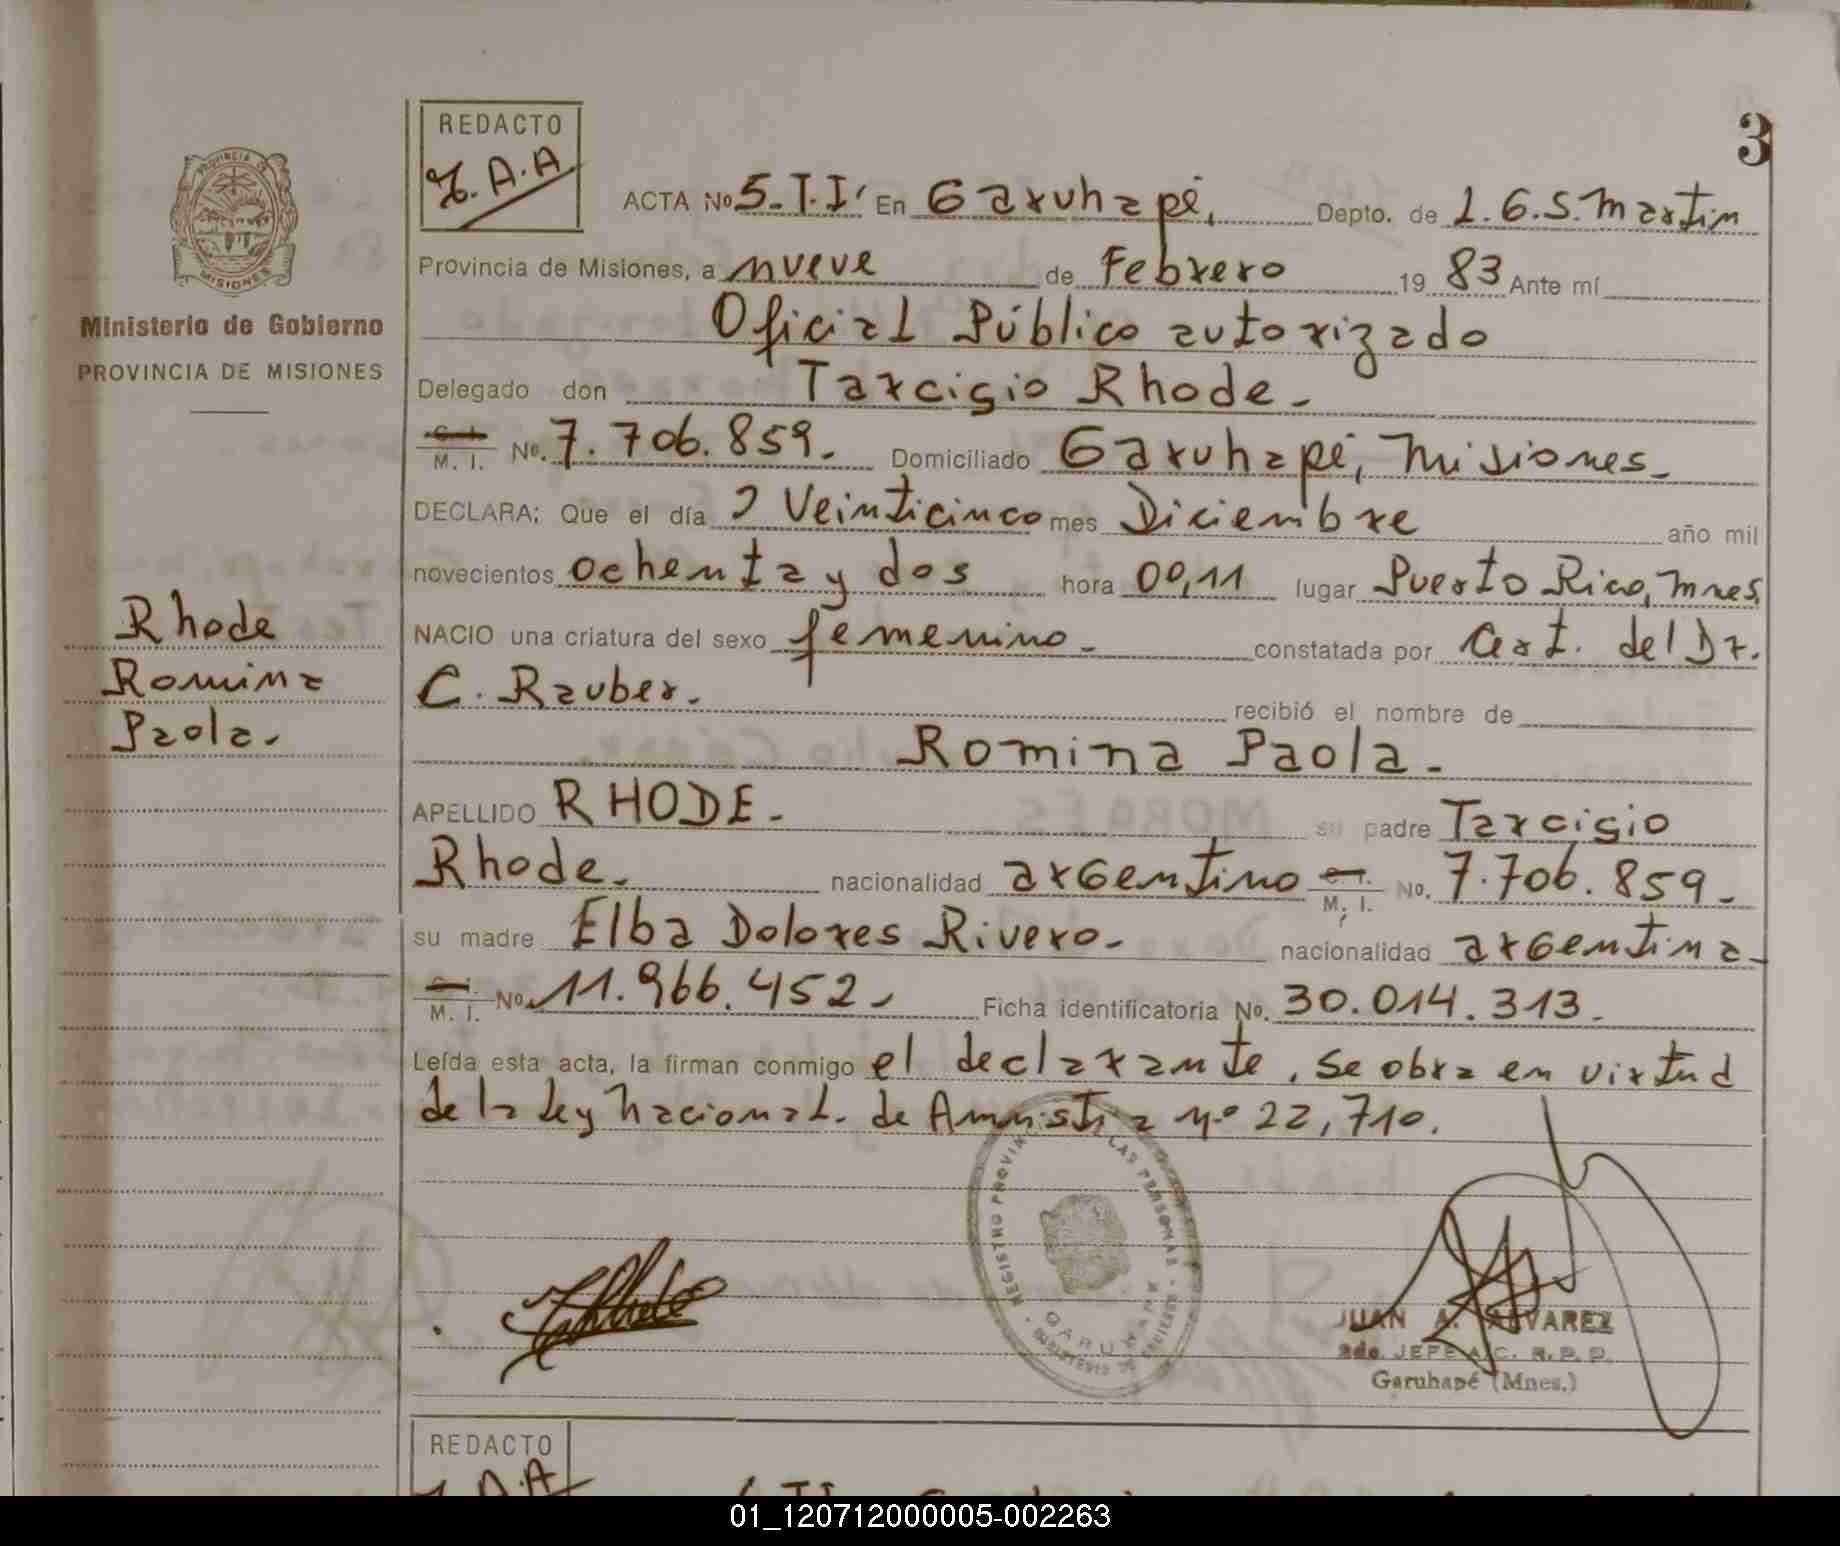 3
REDACTO
J.A.A
ACTA Nº 5-T.I' En Garuhapé, Depto. de L.G.S. Martin
Provincia de Misiones, a nueve de Febrero 19 83 Ante mí
Oficial Público autorizado
Delegado don Tarcisio Rhode.
C. I. M. I. Nº. 7.706.859. Domiciliado Garuhapé, Misiones.
DECLARA: Que el día Veinticinco mes Diciembre año mil
novecientos ochenta y dos hora 00,11 lugar Puerto Rico, Mnes.
NACIO una criatura del sexo femenino. constatada por Cert. del Dr.
C. Rauber. recibió el nombre de
Romina Paola.
APELLIDO RHODE. su padre Tarcisio
Rhode. nacionalidad argentino C. I. M. I. Nº. 7.706.859.
su madre Elba Dolores Rivero. nacionalidad argentina.
C. I. M. I. Nº. 11.966.452. Ficha identificatoria Nº. 30.014.313.
Leída esta acta, la firman conmigo el declarante, se obra en virtud
de la Ley Nacional. de Amnistia nº 22,710.
PROVINCIA DE MISIONES
Ministerio de Gobierno
PROVINCIA DE MISIONES
Rhode
Romina
Paola.
JUAN A. ALVAREZ
2do. JEFE A/C. R.P.P.
Garuhapé (Mnes.)
REDACTO
01_120712000005-002263